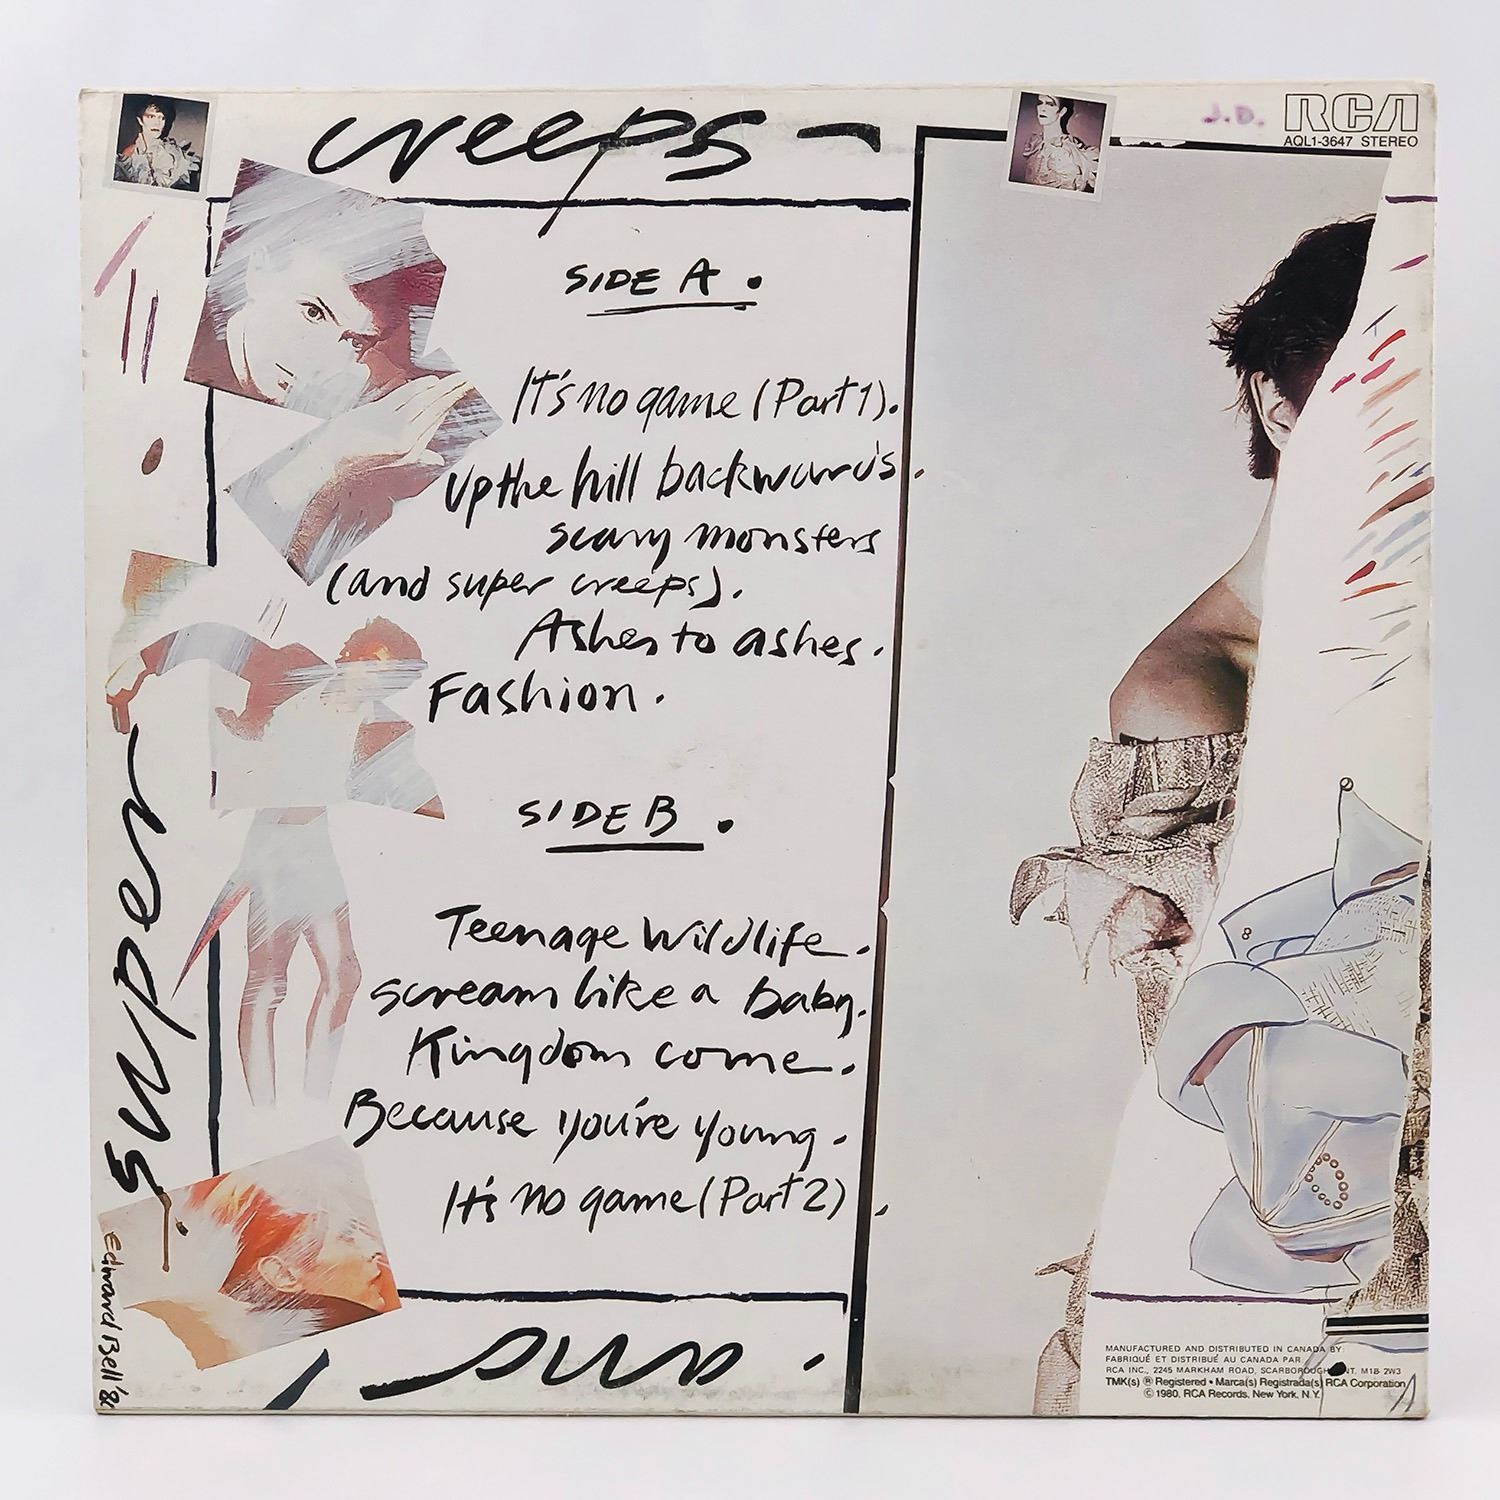 creeps -
J.D.
RCA
AQL1-3647 STEREO
SIDE A .
It's no game (Part 1).
Up the hill backwards.
scary monsters
(and super creeps).
Ashes to ashes.
Fashion.
SIDE B .
Teenage Wildlife.
scream like a baby.
Kingdom come.
Because you're young.
It's no game (Part 2).
super
Edward Bell '80
and
MANUFACTURED AND DISTRIBUTED IN CANADA BY
FABRIQUÉ ET DISTRIBUÉ AU CANADA PAR
RCA INC., 2245 MARKHAM ROAD, SCARBOROUGH ONT. M1B 2W3
TMK(s) ® Registered • Marca(s) Registrada(s) RCA Corporation
© 1980, RCA Records, New York, N.Y.